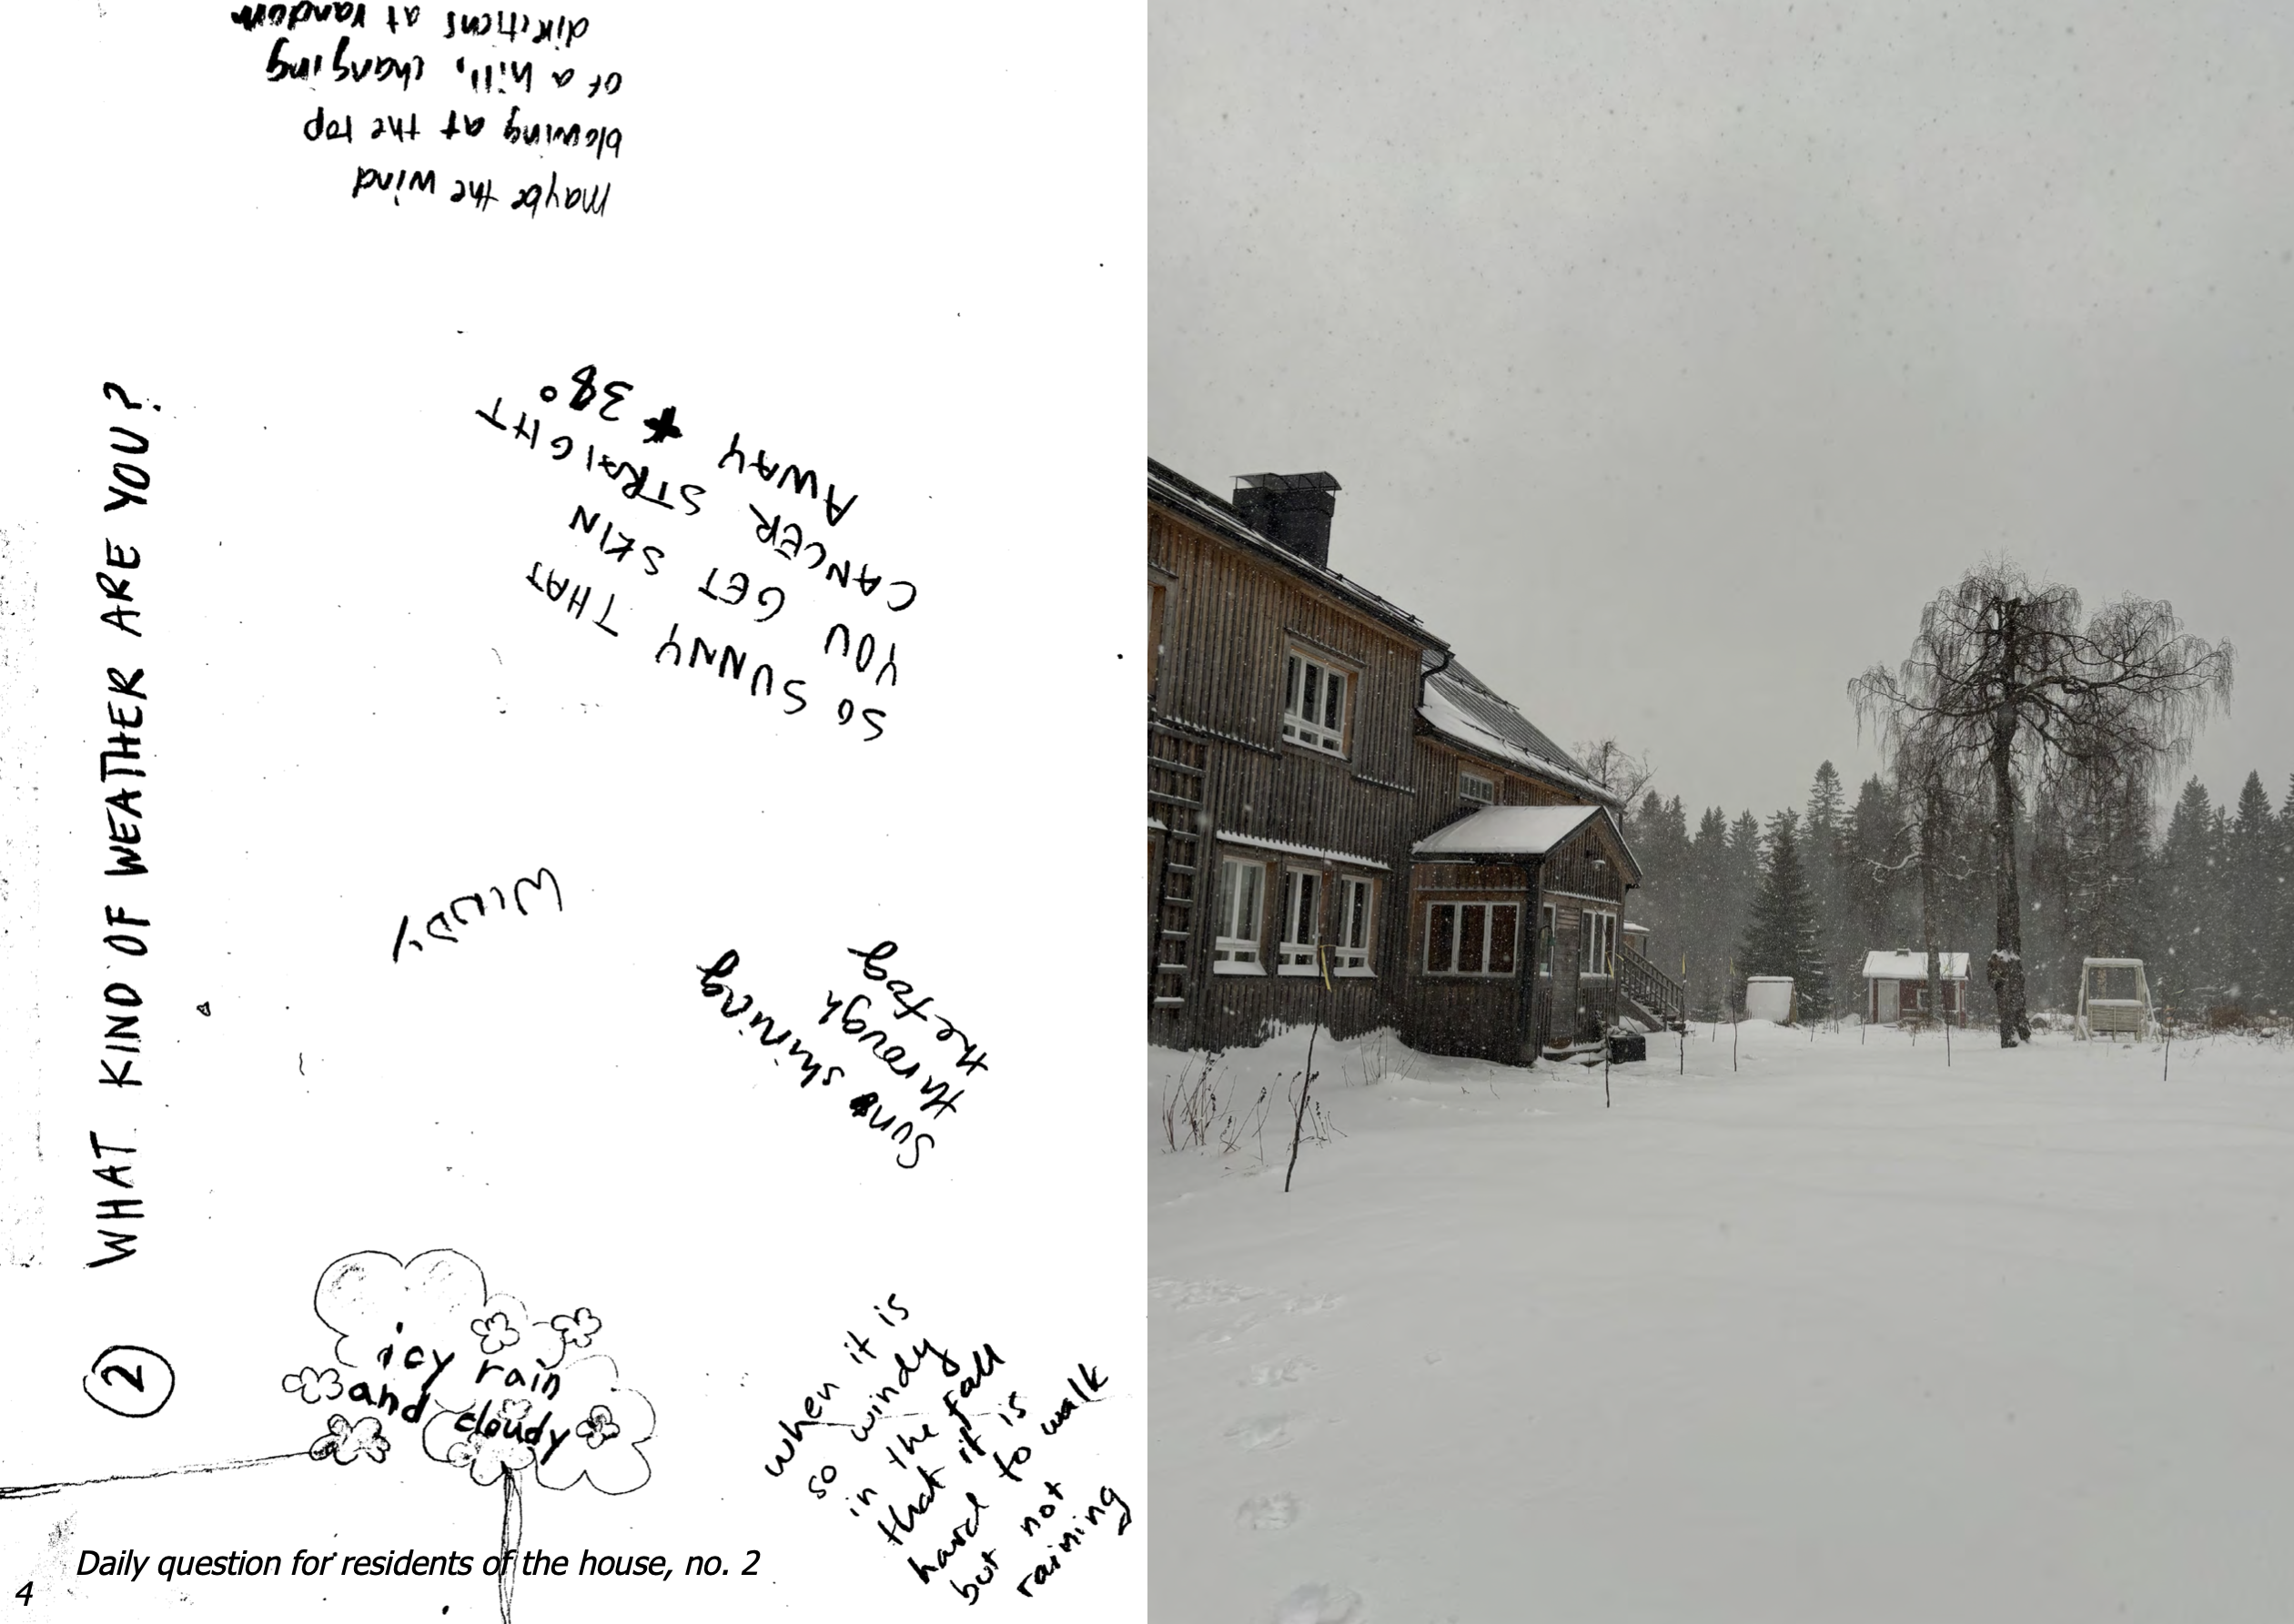 maybe the wind
blowing at the top
of a hill, changing
directions at random
WHAT KIND OF WEATHER ARE YOU?
2
SO SUNNY THAT
YOU GET SKIN
CANCER STRAIGHT
AWAY + 38°
WINDY
sun shining
through
the fog
icy rain
and cloudy
when it is
so windy
in the fall
that it is
hard to walk
but not
raining
Daily question for residents of the house, no. 2
4